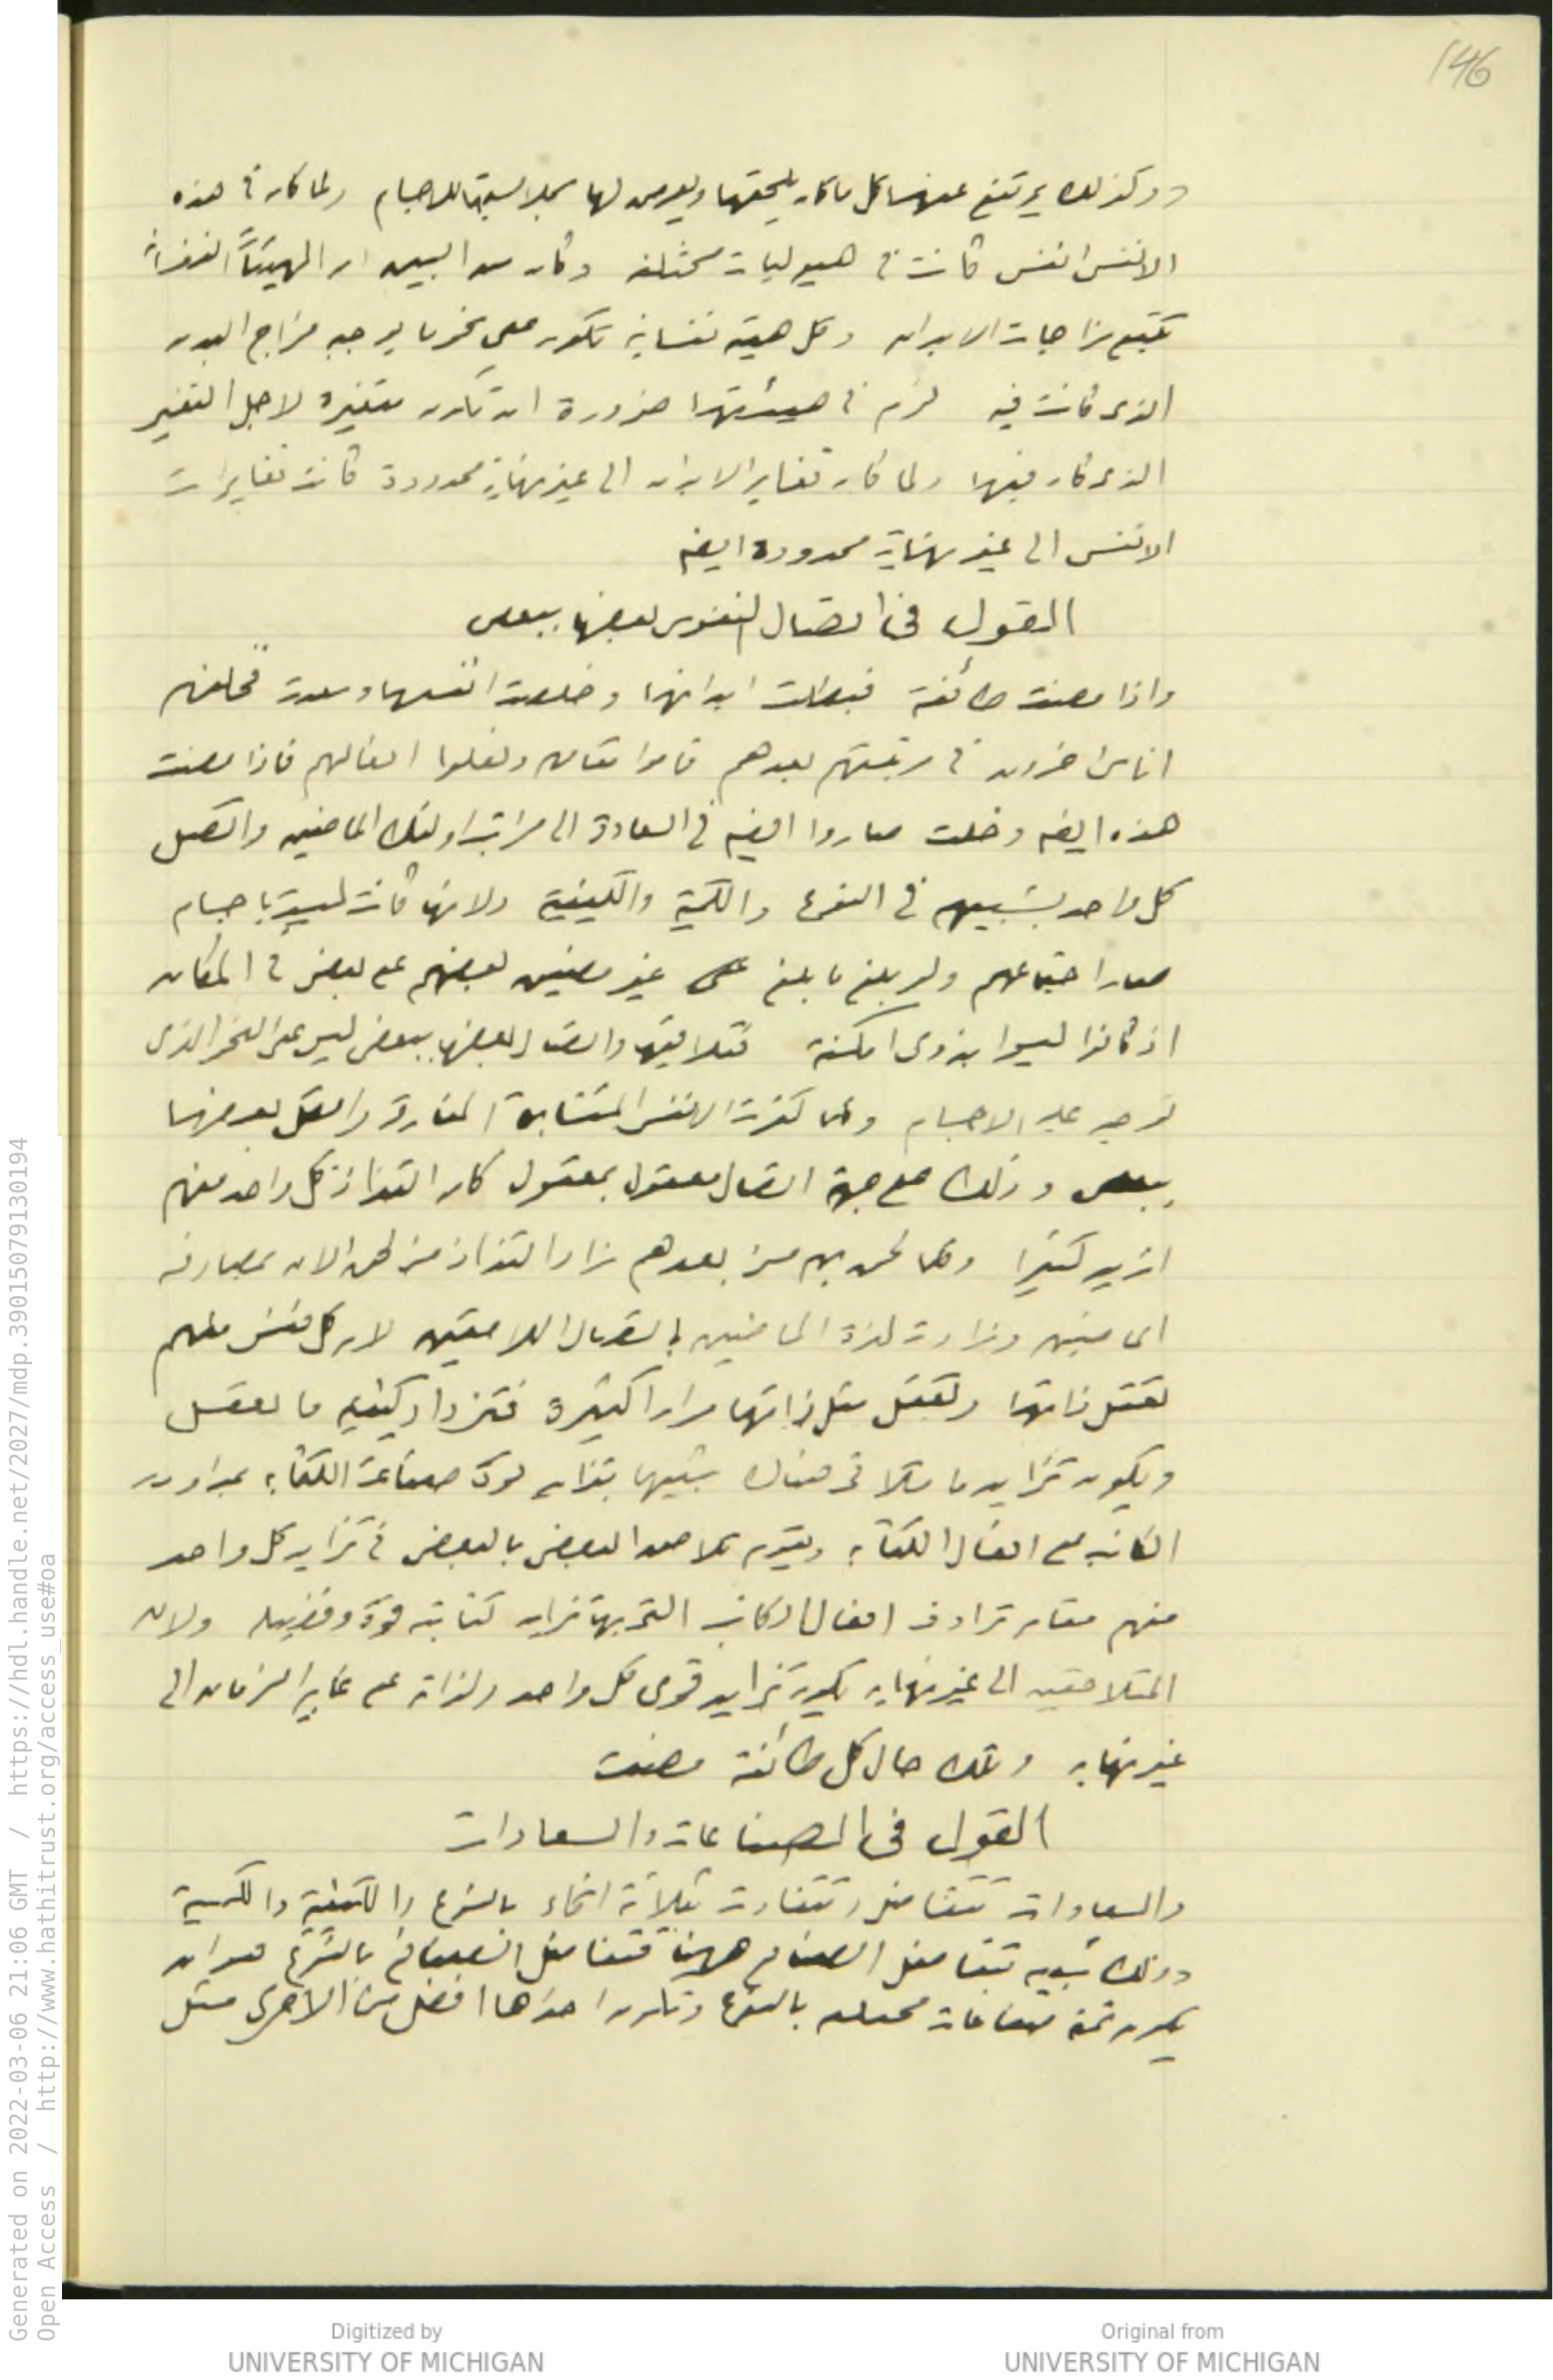 146
وكذلك يرتفع عنها كل ما كان يلحقها ويعرض لها بملابستها للاجسام ولما كان في هذه
الانفس انفس كانت في هيوليات مختلفة وكان من البين ان الهيئات النفسانية
تتبع مزاجات الابدان وكل هيئة نفسانية تكون على نحو ما يوجبه مزاج البدن
الذي كانت فيه لزم في هيئتها ضرورة ان تكون متغيرة لاجل التغير
الذي كان فيها ولما كان تغاير الابدان الى غير نهاية محدودة كانت تغايرات
الانفس الى غير نهاية محدودة ايضه
القول في اتصال النفوس بعضها ببعض
واذا مضت طائفة فبطلت ابدانها وخلصت انفسها وسعدت فخلفهم
اناس اخرون في مرتبتهم بعدهم قاموا مقامهم وفعلوا افعالهم فاذا مضت
هذه ايضه وخلت صاروا ايضه في السعادة الى مراتب اولئك الماضين واتصل
كل واحد بشبيهه في النوع والكمية والكيفية ولانها كانت ليست باجسام
صار اجتماعهم ولو بلغ ما بلغ غير مضيق بعضهم على بعض في المكان
اذ كانوا ليسوا بذوي امكنة فتلاقيها واتصال بعضها ببعض ليس على النحو الذي
توجد عليه الاجسام وكلما كثرت الانفس المتشابهة المفارقة واتصل بعضها
ببعض وذلك على جهة اتصال معقول بمعقول كان التذاذ كل واحد منهم
ازيد كثيرا وكلما لحق بهم من بعدهم زاد التذاذ من لحق الان بمصادفة
الماضين وزادت لذة الماضين باتصال اللاحقين لان كل نفس منهم
تعقل ذاتها وتعقل مثل ذاتها مرارا كثيرة فتزداد كيفية ما تعقل
ويكون تزايد ما تلاقى هناك شبيها بتزايد قوة صناعة الكتابة بمداومة
الكاتب على افعال الكتابة ويقوم تلاحق البعض بالبعض في تزايد كل واحد
منهم مقام ترادف افعال الكاتب التي بها تزايد كتابته قوة وفضيلة ولان
المتلاحقين الى غير نهاية يكون تزايد قوى كل واحد ولذاته على غابر الزمان الى
غير نهاية وتلك حال كل طائفة مضت
القول في الصناعات والسعادات
والسعادات تتفاضل وتتفاوت بثلاثة انحاء بالنوع والكيفية والكمية
وذلك شبيه بتفاضل الصنائع ههنا فتفاضل الصنائع بالنوع هو ان
يكون ثمة صناعات مختلفة بالنوع وتكون احداها افضل من الاخرى مثل
Generated on 2022-03-06 21:06 GMT / https://hdl.handle.net/2027/mdp.39015079130194
Open Access / http://www.hathitrust.org/access_use#oa
Digitized by
UNIVERSITY OF MICHIGAN
Original from
UNIVERSITY OF MICHIGAN